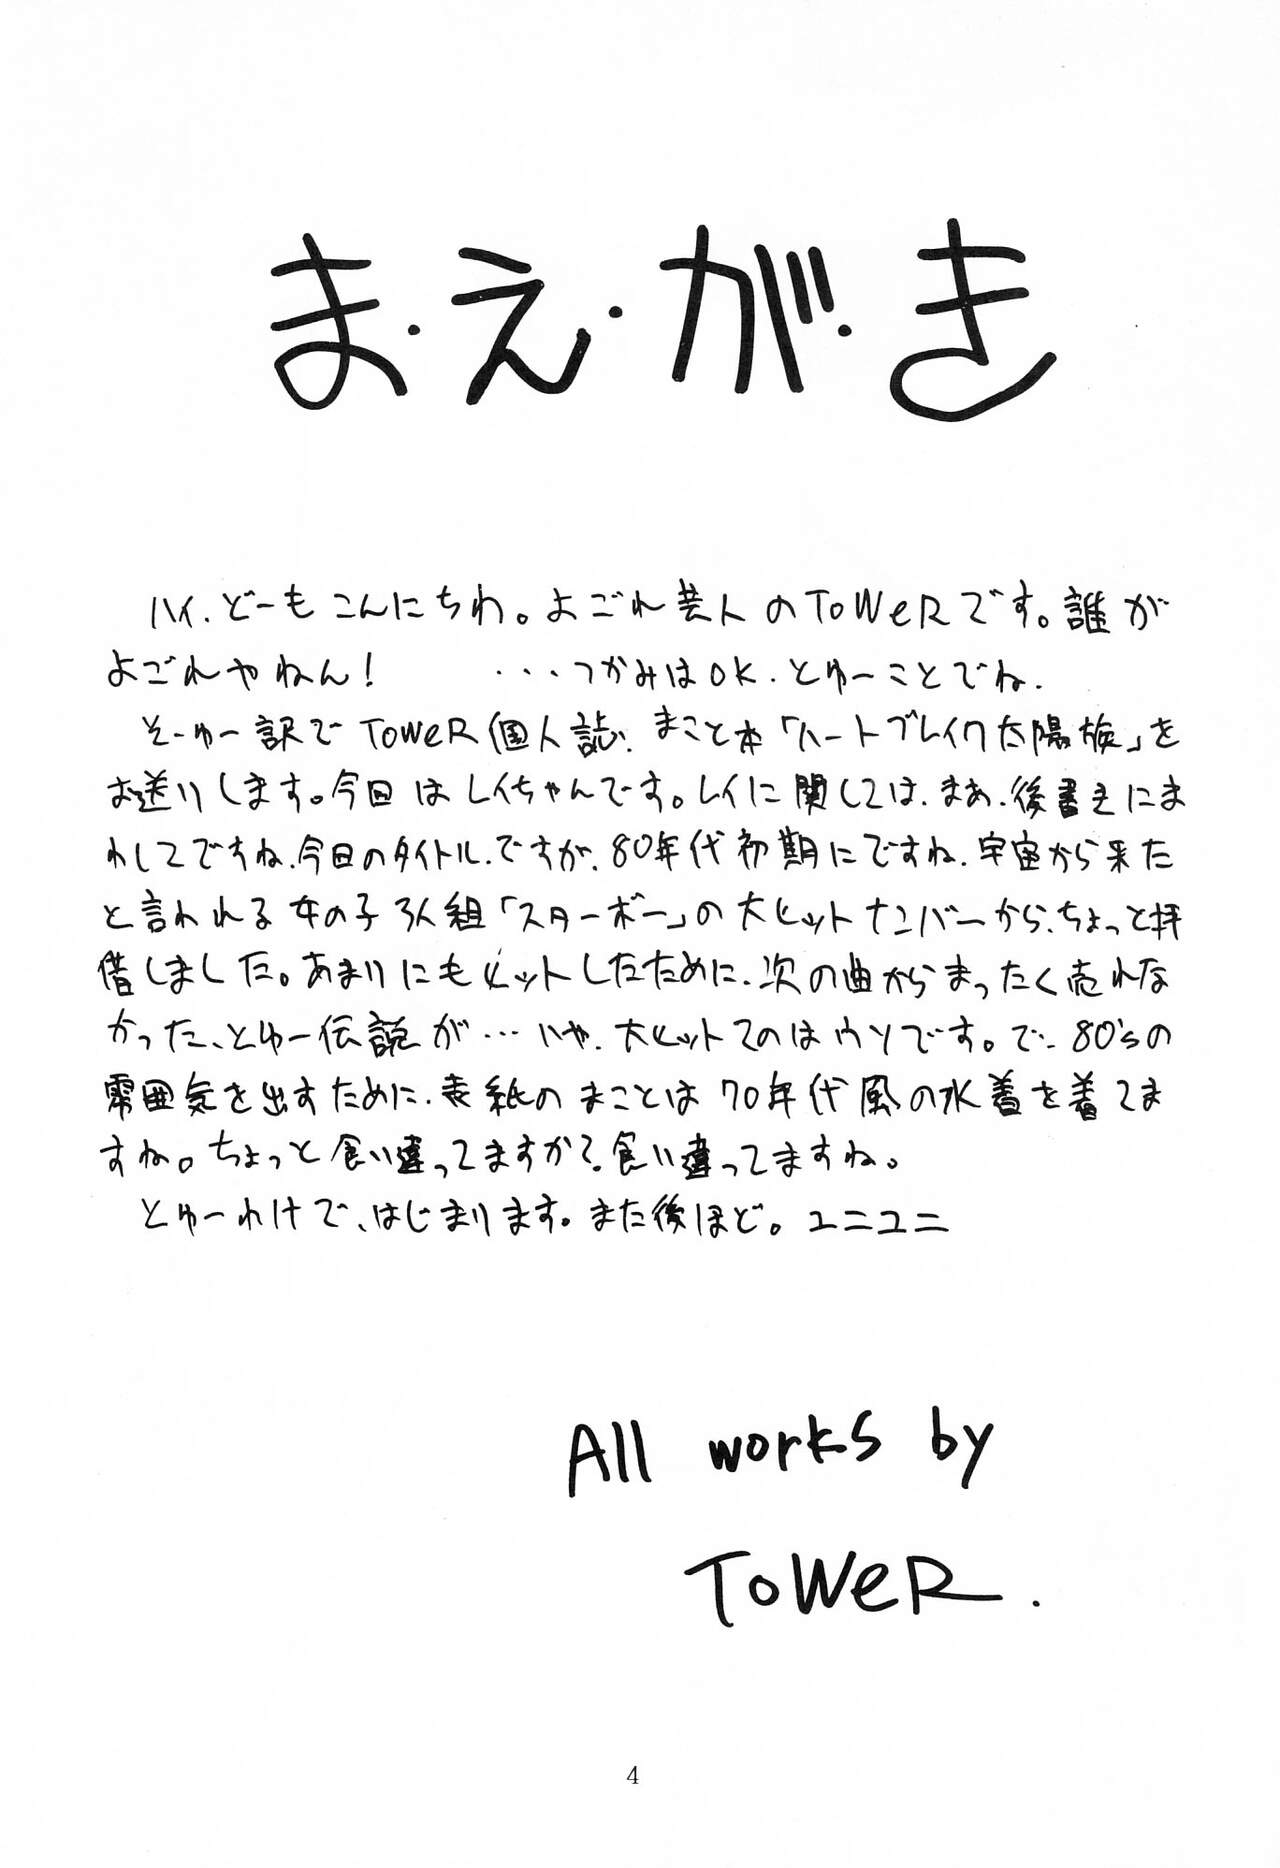 ま・え・が・き
ハイ、どーもこんにちわ。よごれ芸人のToWeRです。誰が
よごれやねん! ・・・つかみはOK、とゆーことでね、
そーゆー訳でToWeR個人誌、まこと本「ハートブレイク太陽族」を
お送りします。今回はレイちゃんです。レイに関しては、まあ、後書きにま
わしてですね、今日のタイトル、ですが、80年代初期にですね、宇宙から来た
と言われる女の子3人組「スターボー」の大ヒットナンバーから、ちょっと拝
借しました。あまりにもヒットしたために、次の曲からまったく売れな
かった、とゆー伝説が・・・いや、大ヒットてのはウソです。で、80'sの
雰囲気を出すために、表紙のまことは70年代風の水着を着てま
すね。ちょっと食い違ってますか?食い違ってますね。
とゆーわけで、はじまります。また後ほど。ユニユニ
All works by
ToWeR.
4